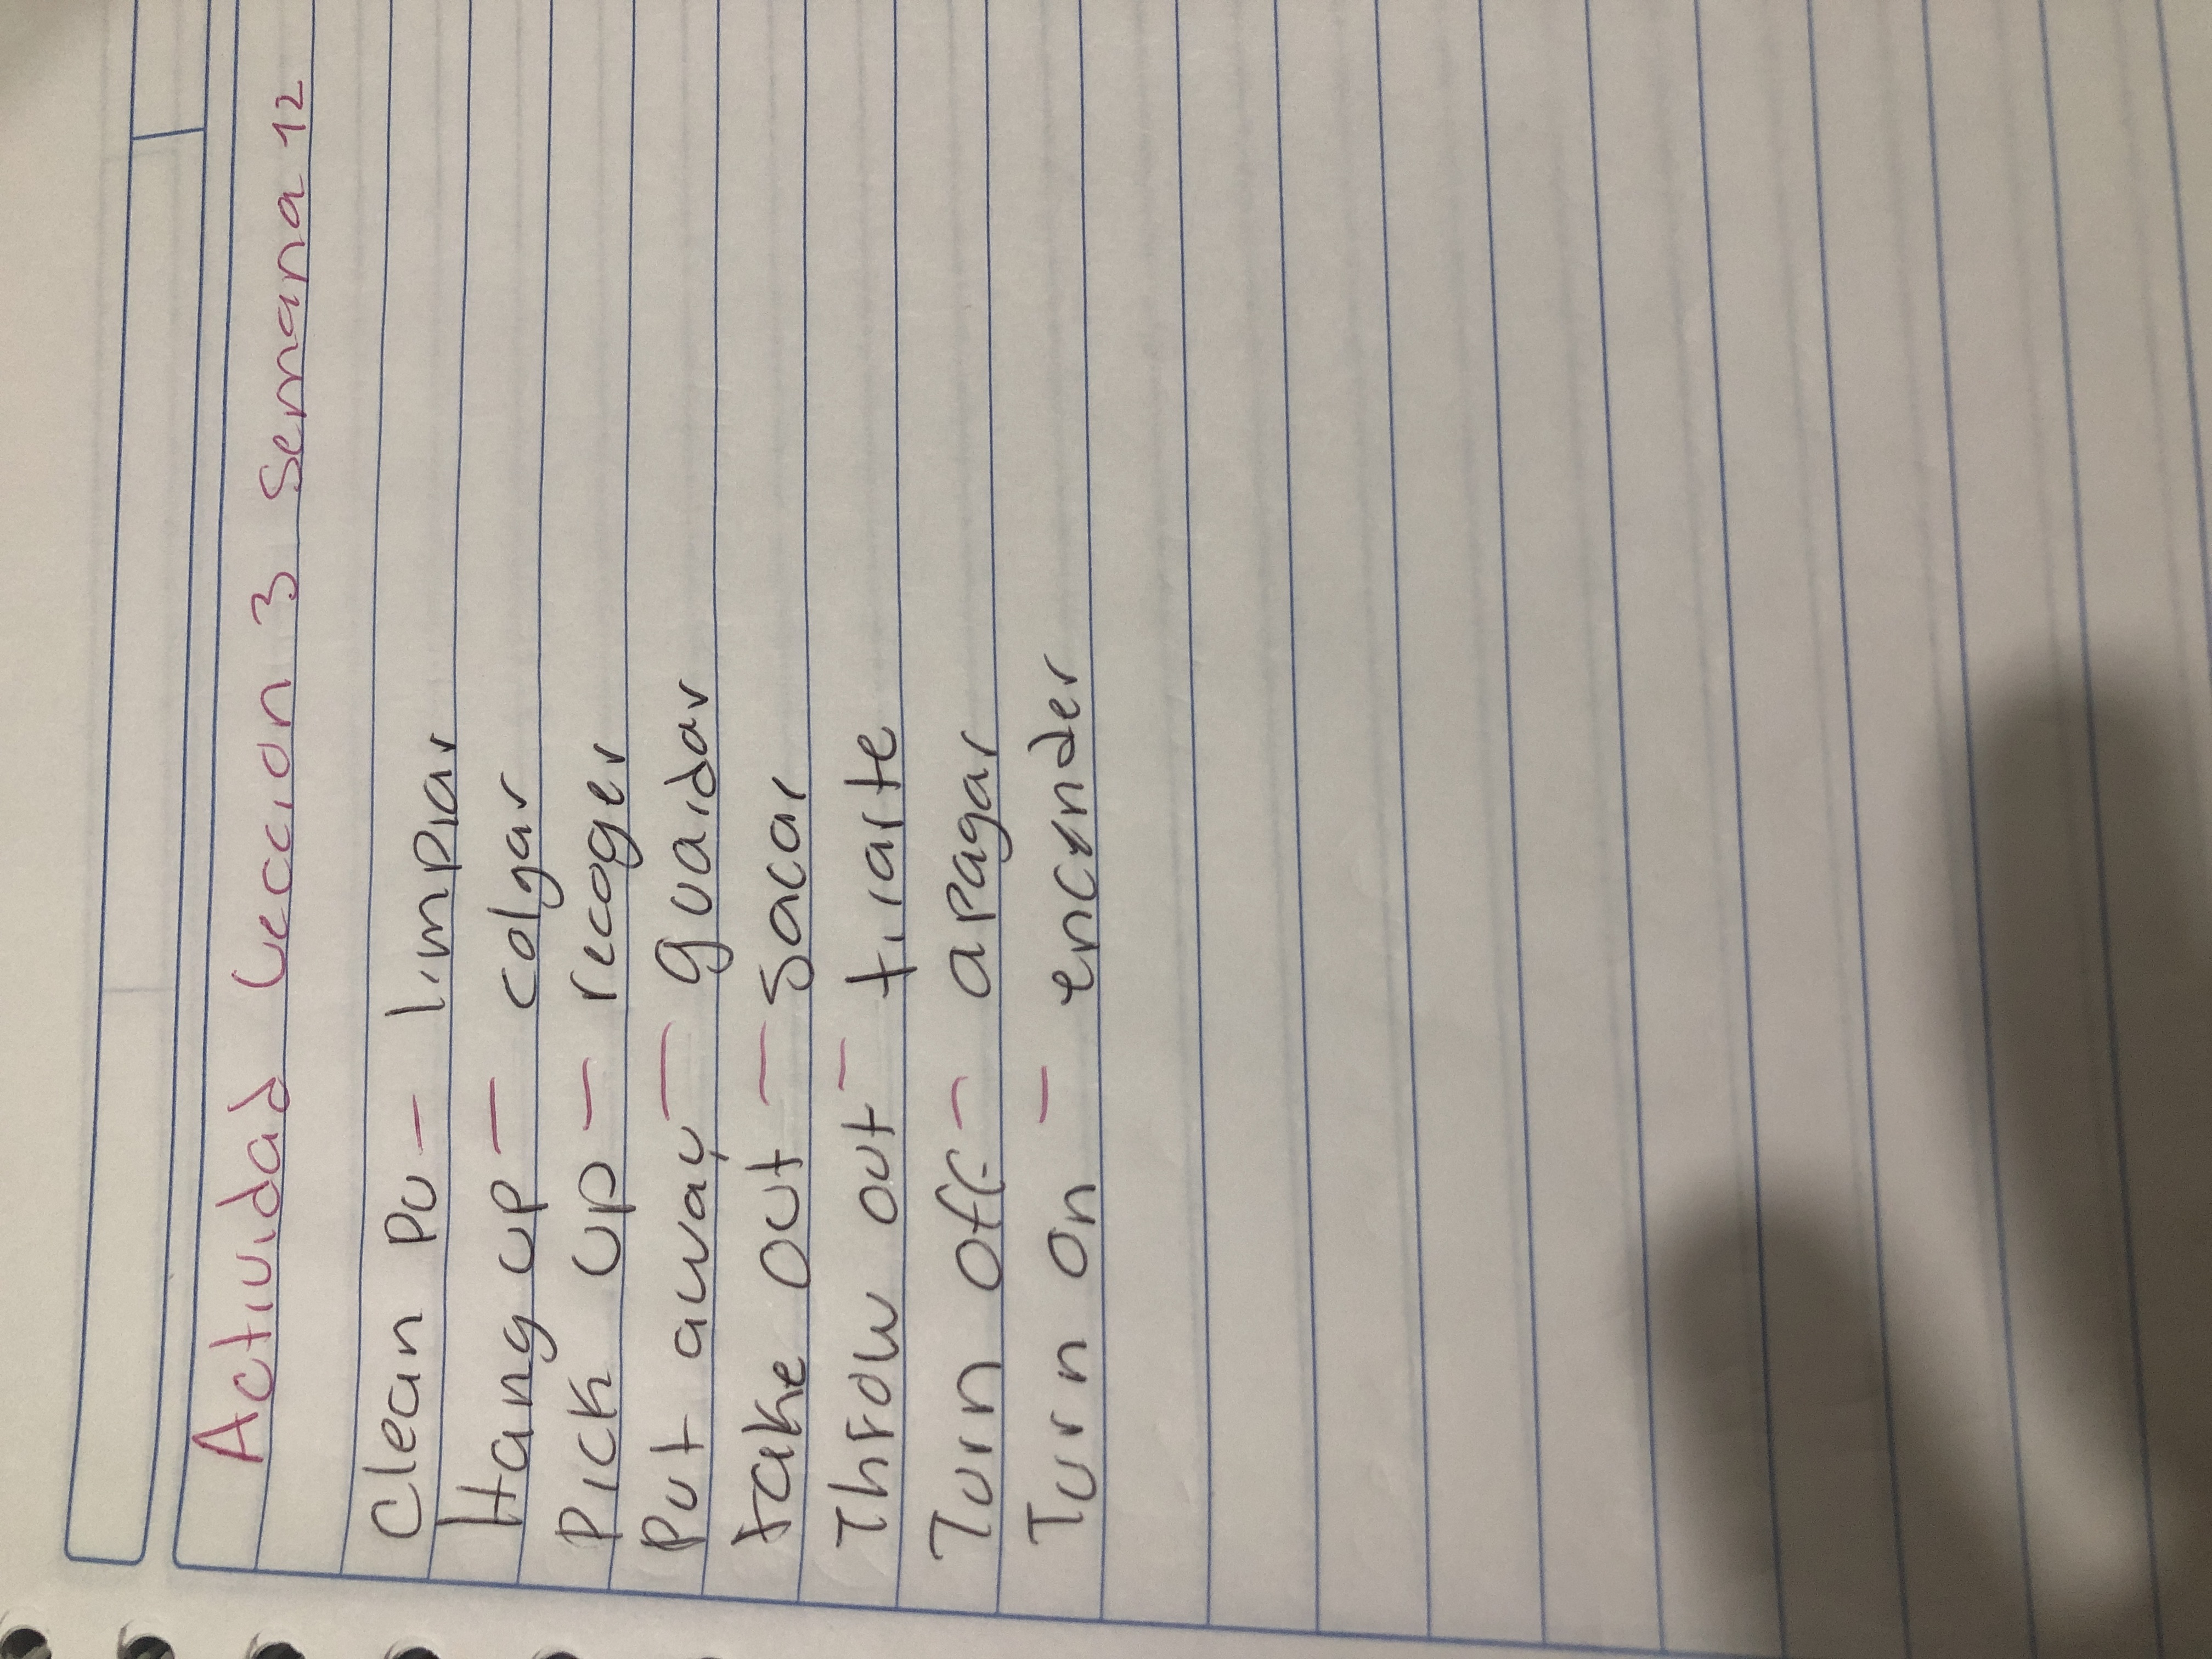 Actividad Leccion 3 Semana 12
Clean pu - limpiar
Hang up - colgar
Pick up - recoger
Put away - guardar
take out - sacar
Throw out - tirarte
Turn off - apagar
Turn on - encender